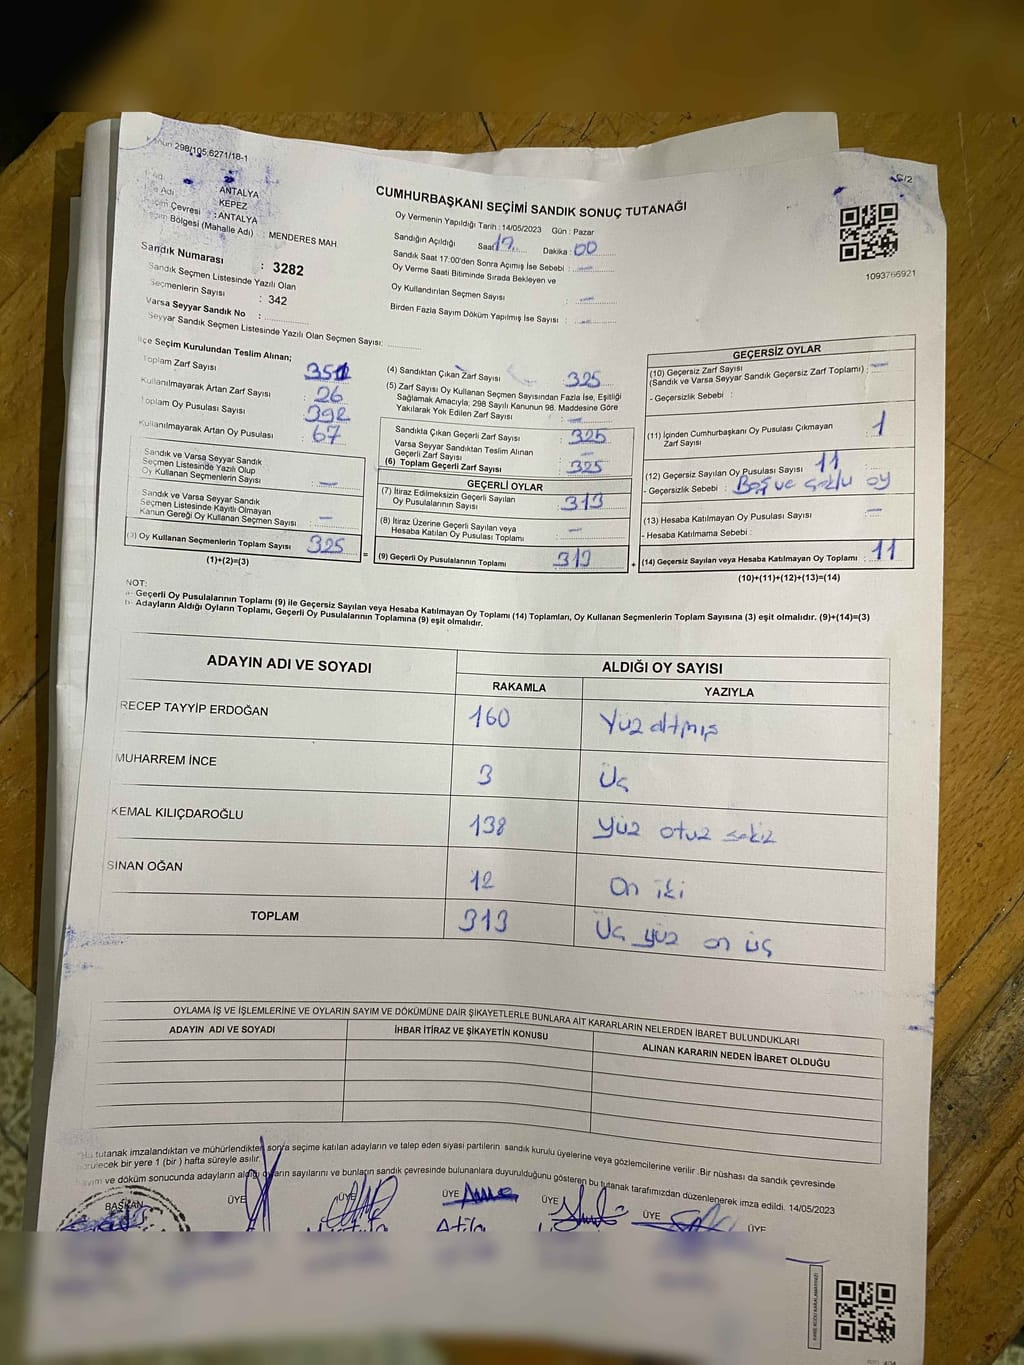 298/105,6271/18-1
S/2
CUMHURBAŞKANI SEÇİMİ SANDIK SONUÇ TUTANAĞI
: ANTALYA
Adı : KEPEZ
Çevresi : ANTALYA
Bölgesi (Mahalle Adı) : MENDERES MAH
Sandık Numarası : 3282
Sandık Seçmen Listesinde Yazılı Olan
Seçmenlerin Sayısı : 342
Varsa Seyyar Sandık No :
Seyyar Sandık Seçmen Listesinde Yazılı Olan Seçmen Sayısı:
Oy Vermenin Yapıldığı Tarih : 14/05/2023 Gün : Pazar
Sandığın Açıldığı Saat 17 Dakika : 00
Sandık Saat 17:00'den Sonra Açımış İse Sebebi : —
Oy Verme Saati Bitiminde Sırada Bekleyen ve
Oy Kullandırılan Seçmen Sayısı : —
Birden Fazla Sayım Döküm Yapılmış İse Sayısı : —
1093766921
İlçe Seçim Kurulundan Teslim Alınan;
Toplam Zarf Sayısı 351
Kullanılmayarak Artan Zarf Sayısı 26
Toplam Oy Pusulası Sayısı 392
Kullanılmayarak Artan Oy Pusulası 67
Sandık ve Varsa Seyyar Sandık
Seçmen Listesinde Yazılı Olup
Oy Kullanan Seçmenlerin Sayısı : —
Sandık ve Varsa Seyyar Sandık
Seçmen Listesinde Kayıtlı Olmayan
Kanun Gereği Oy Kullanan Seçmen Sayısı : —
(3) Oy Kullanan Seçmenlerin Toplam Sayısı 325
(1)+(2)=(3)
=
(4) Sandıktan Çıkan Zarf Sayısı 325
(5) Zarf Sayısı Oy Kullanan Seçmen Sayısından Fazla İse, Eşitliği
Sağlamak Amacıyla, 298 Sayılı Kanunun 98. Maddesine Göre
Yakılarak Yok Edilen Zarf Sayısı : —
Sandıkta Çıkan Geçerli Zarf Sayısı : 325
Varsa Seyyar Sandıktan Teslim Alınan
Geçerli Zarf Sayısı : —
(6) Toplam Geçerli Zarf Sayısı : 325
GEÇERLİ OYLAR
(7) İtiraz Edilmeksizin Geçerli Sayılan
Oy Pusulalarının Sayısı : 313
(8) İtiraz Üzerine Geçerli Sayılan veya
Hesaba Katılan Oy Pusulası Toplamı : —
(9) Geçerli Oy Pusulalarının Toplamı 313
+
GEÇERSİZ OYLAR
(10) Geçersiz Zarf Sayısı
(Sandık ve Varsa Seyyar Sandık Geçersiz Zarf Toplamı) : —
- Geçersizlik Sebebi :
(11) İçinden Cumhurbaşkanı Oy Pusulası Çıkmayan
Zarf Sayısı : 1
(12) Geçersiz Sayılan Oy Pusulası Sayısı : 11
- Geçersizlik Sebebi : Boş ve oy
(13) Hesaba Katılmayan Oy Pusulası Sayısı : —
- Hesaba Katılmama Sebebi :
(14) Geçersiz Sayılan veya Hesaba Katılmayan Oy Toplamı : 11
(10)+(11)+(12)+(13)=(14)
NOT:
a- Geçerli Oy Pusulalarının Toplamı (9) ile Geçersiz Sayılan veya Hesaba Katılmayan Oy Toplamı (14) Toplamları, Oy Kullanan Seçmenlerin Toplam Sayısına (3) eşit olmalıdır. (9)+(14)=(3)
b- Adayların Aldığı Oyların Toplamı, Geçerli Oy Pusulalarının Toplamına (9) eşit olmalıdır.
ADAYIN ADI VE SOYADI ALDIĞI OY SAYISI
RAKAMLA YAZIYLA
RECEP TAYYİP ERDOĞAN 160 Yüz altmış
MUHARREM İNCE 3 Üç
KEMAL KILIÇDAROĞLU 138 Yüz otuz sekiz
SİNAN OĞAN 12 On iki
TOPLAM 313 Üç yüz on üç
OYLAMA İŞ VE İŞLEMLERİNE VE OYLARIN SAYIM VE DÖKÜMÜNE DAİR ŞİKAYETLERLE BUNLARA AİT KARARLARIN NELERDEN İBARET BULUNDUKLARI
ADAYIN ADI VE SOYADI İHBAR İTİRAZ VE ŞİKAYETİN KONUSU ALINAN KARARIN NEDEN İBARET OLDUĞU
Bu tutanak imzalandıktan ve mühürlendikten sonra seçime katılan adayların ve talep eden siyasi partilerin sandık kurulu üyelerine veya gözlemcilerine verilir. Bir nüshası da sandık çevresinde
görülecek bir yere 1 (bir) hafta süreyle asılır.
Sayım ve döküm sonucunda adayların aldığı oyların sayılarını ve bunların sandık çevresinde bulunanlara duyurulduğunu gösteren bu tutanak tarafımızdan düzenlenerek imza edildi. 14/05/2023
BAŞKAN ÜYE ÜYE ÜYE ÜYE ÜYE ÜYE